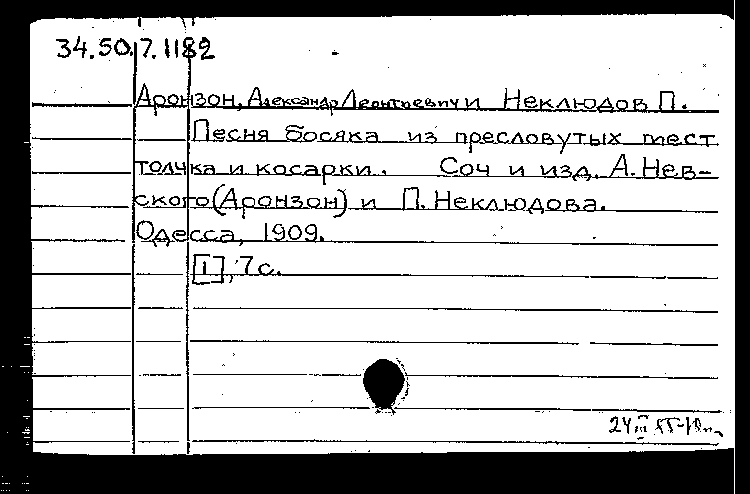 34.50.7.1182
Аронзон, Александр Леонтьевич и Неклюдов П.
Песня босяка из пресловутых мест
толчка и косарки. Соч и изд. А. Нев-
ского (Аронзон) и П. Неклюдова.
Одесса, 1909.
[1], 7 с.
24 III